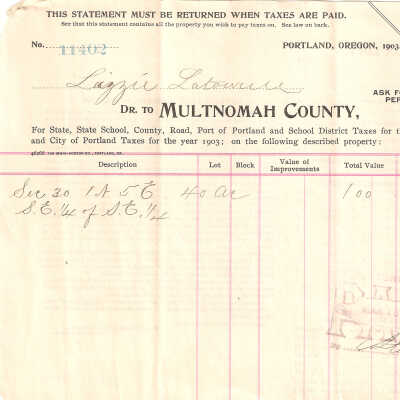 THIS STATEMENT MUST BE RETURNED WHEN TAXES ARE PAID.
See that this statement contains all the property you wish to pay taxes on. See law on back.
No. 11402 PORTLAND, OREGON, 1903
Lizzie
ASK FO
PER
DR. TO MULTNOMAH COUNTY,
For State, State School, County, Road, Port of Portland and School District Taxes for th
and City of Portland Taxes for the year 1903; on the following described property:
Description Lot Block Value of Improvements Total Value
Sec 30 1 N 5 E 40 Ac 100
S.E. 1/4 of S.E. 1/4